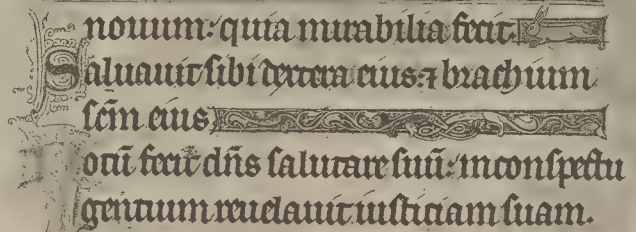 nouum: quia mirabilia fecit.
Saluauit sibi dextera eius: ⁊ brachium
scm̄ eius
otū fecit dn̄s salutare suū: in conspectu
gentium reuelauit iusticiam suam.